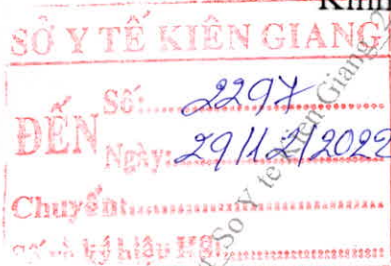 SỞ Y TẾ KIÊN GIANG
ĐẾN
Số: 2297
Ngày: 29/12/2022
Chuyển:
Số và ký hiệu HS:
Sở Y tế Kiên Giang